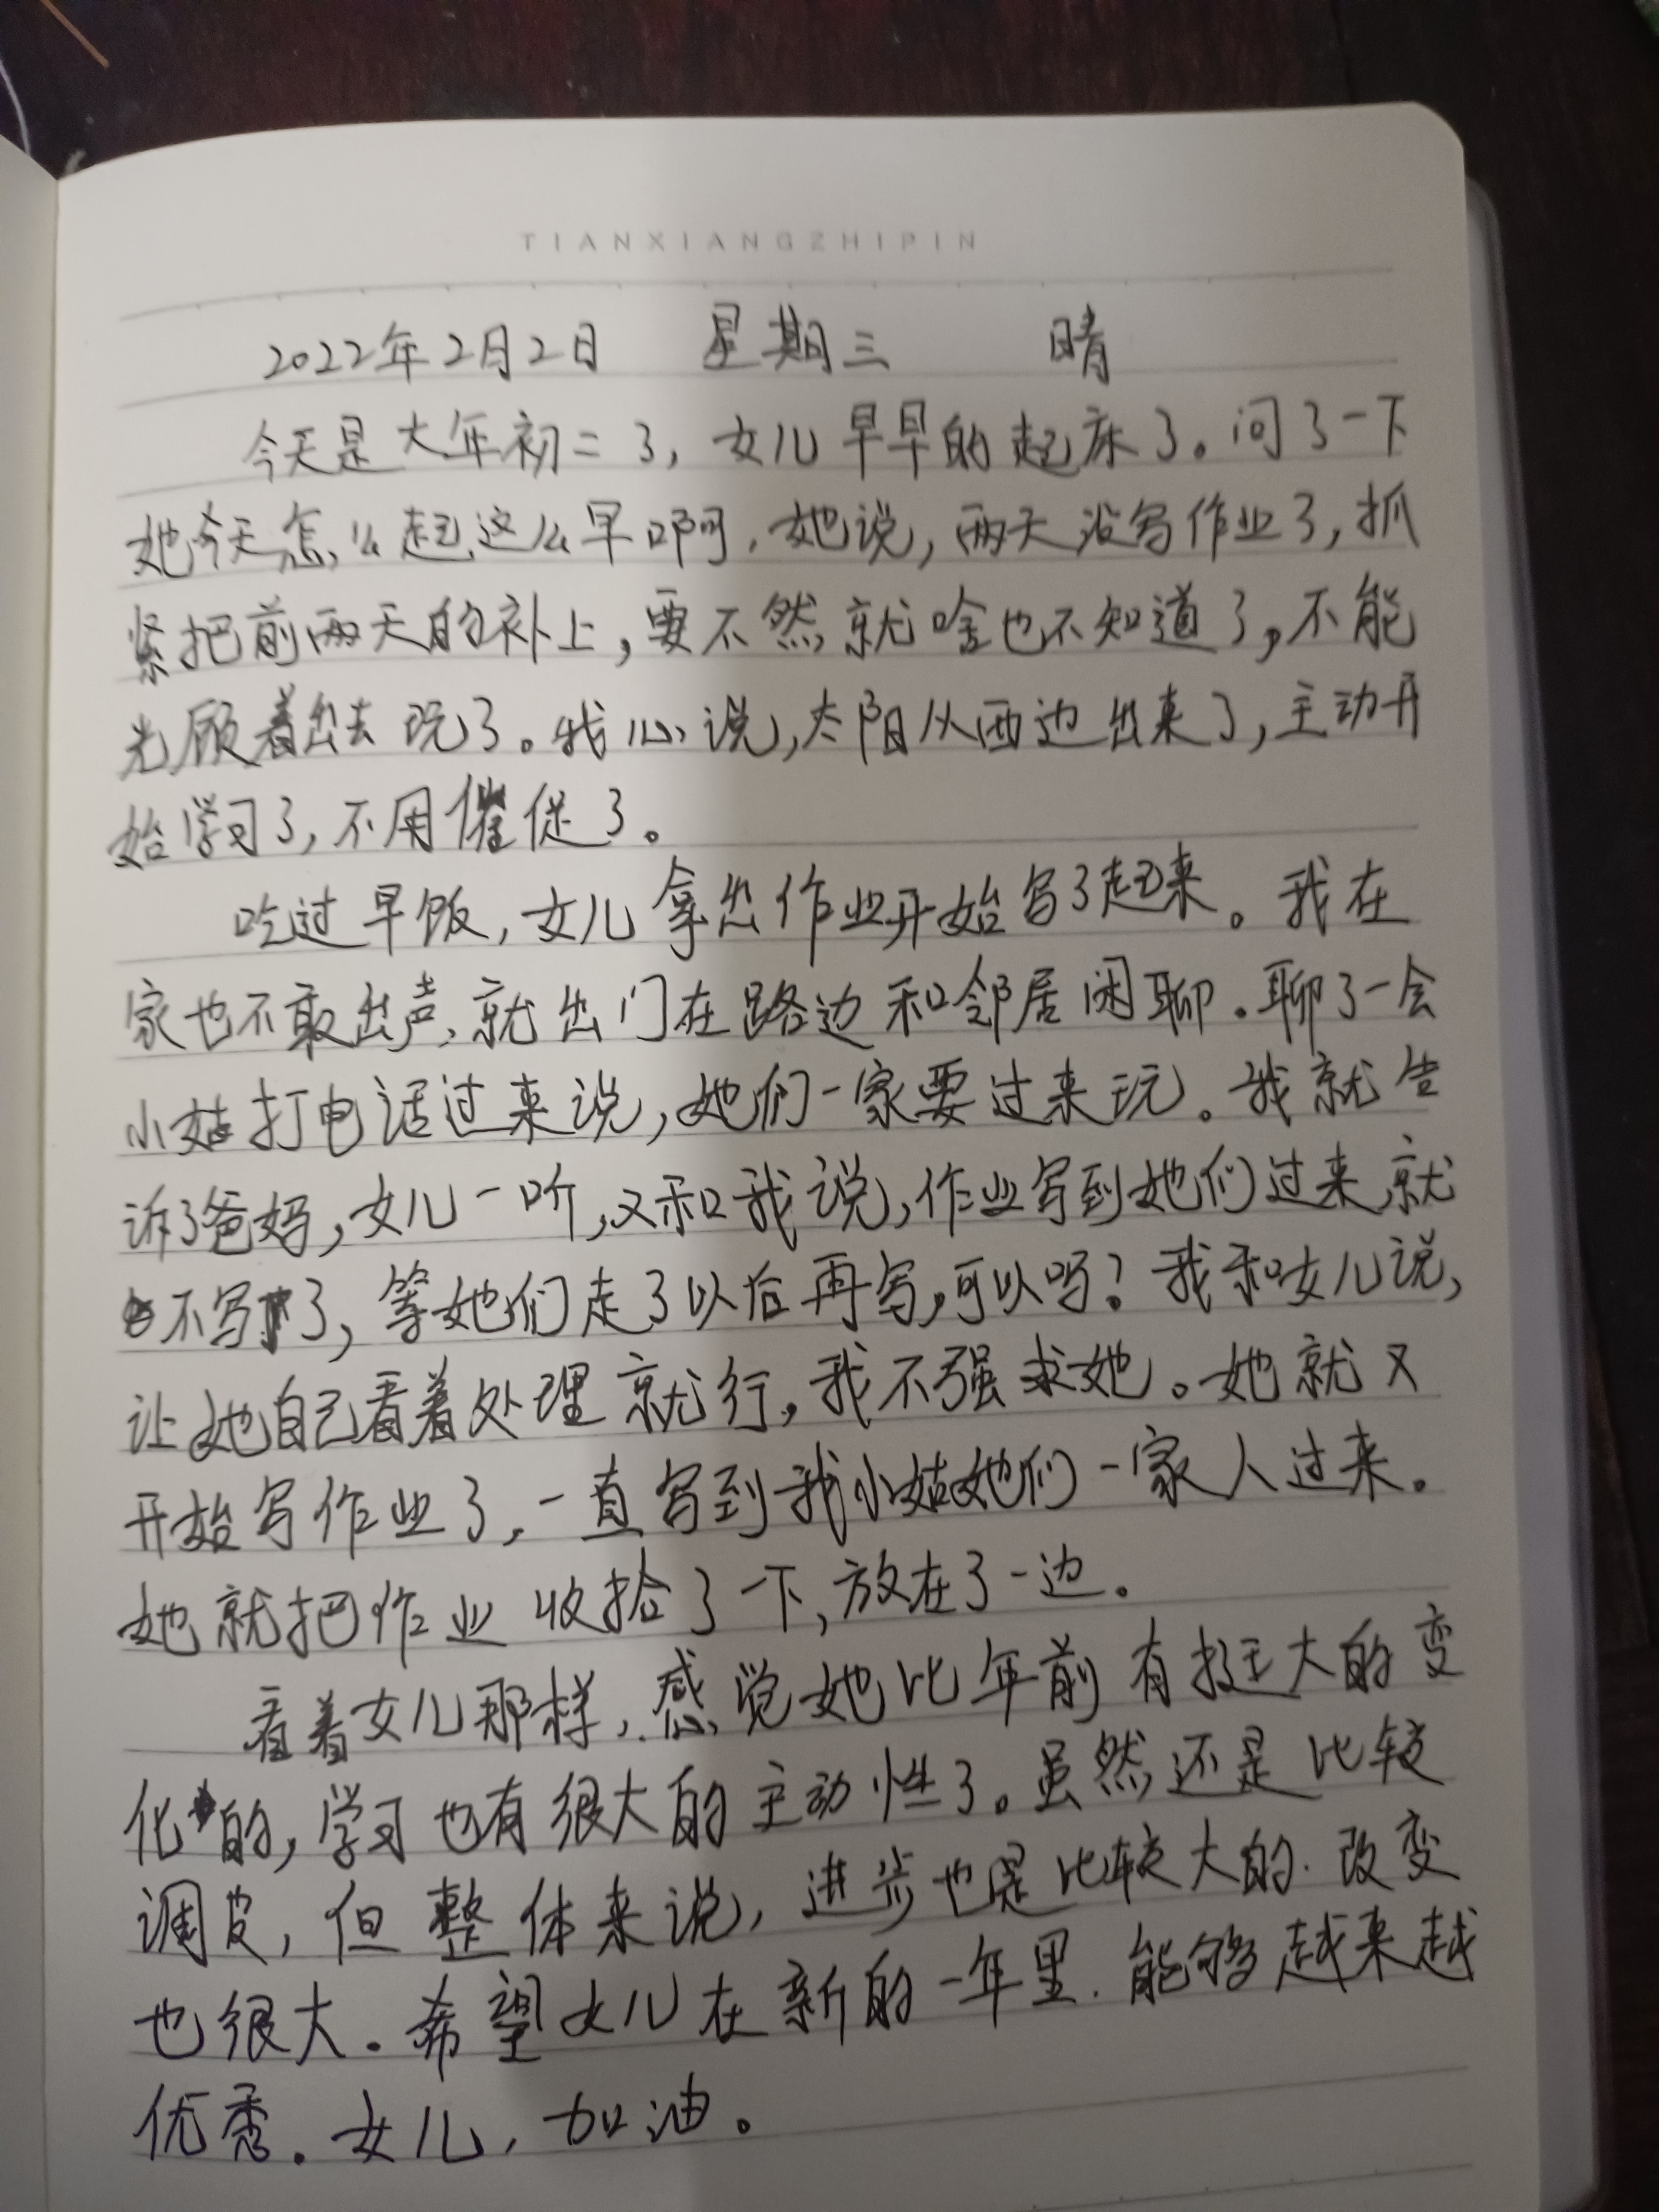 TIANXIANGZHIPIN
2022年2月2日 星期三 晴
今天是大年初二了,女儿早早的起床了。问了一下
她今天怎么起这么早啊,她说,两天没写作业了,抓
紧把前两天的补上,要不然就啥也不知道了,不能
光顾着出去玩了。我心说,太阳从西边出来了,主动开
始学习了,不用催促了。
吃过早饭,女儿拿出作业开始写了起来。我在
家也不敢出声,就出门在路边和邻居闲聊.聊了一会
小姑打电话过来说,她们一家要过来玩。我就告
诉了爸妈,女儿一听,又和我说,作业写到她们过来就
不写了,等她们走了以后再写,可以吗?我和女儿说,
让她自己看着处理就行,我不强求她。她就又
开始写作业了,一直写到我小姑她们一家人过来.
她就把作业收拾了一下,放在了一边.
看着女儿那样,感觉她比年前有挺大的变
化的,学习也有很大的主动性了。虽然还是比较
调皮,但整体来说,进步也是比较大的.改变
也很大.希望女儿在新的一年里.能够越来越
优秀.女儿,加油。